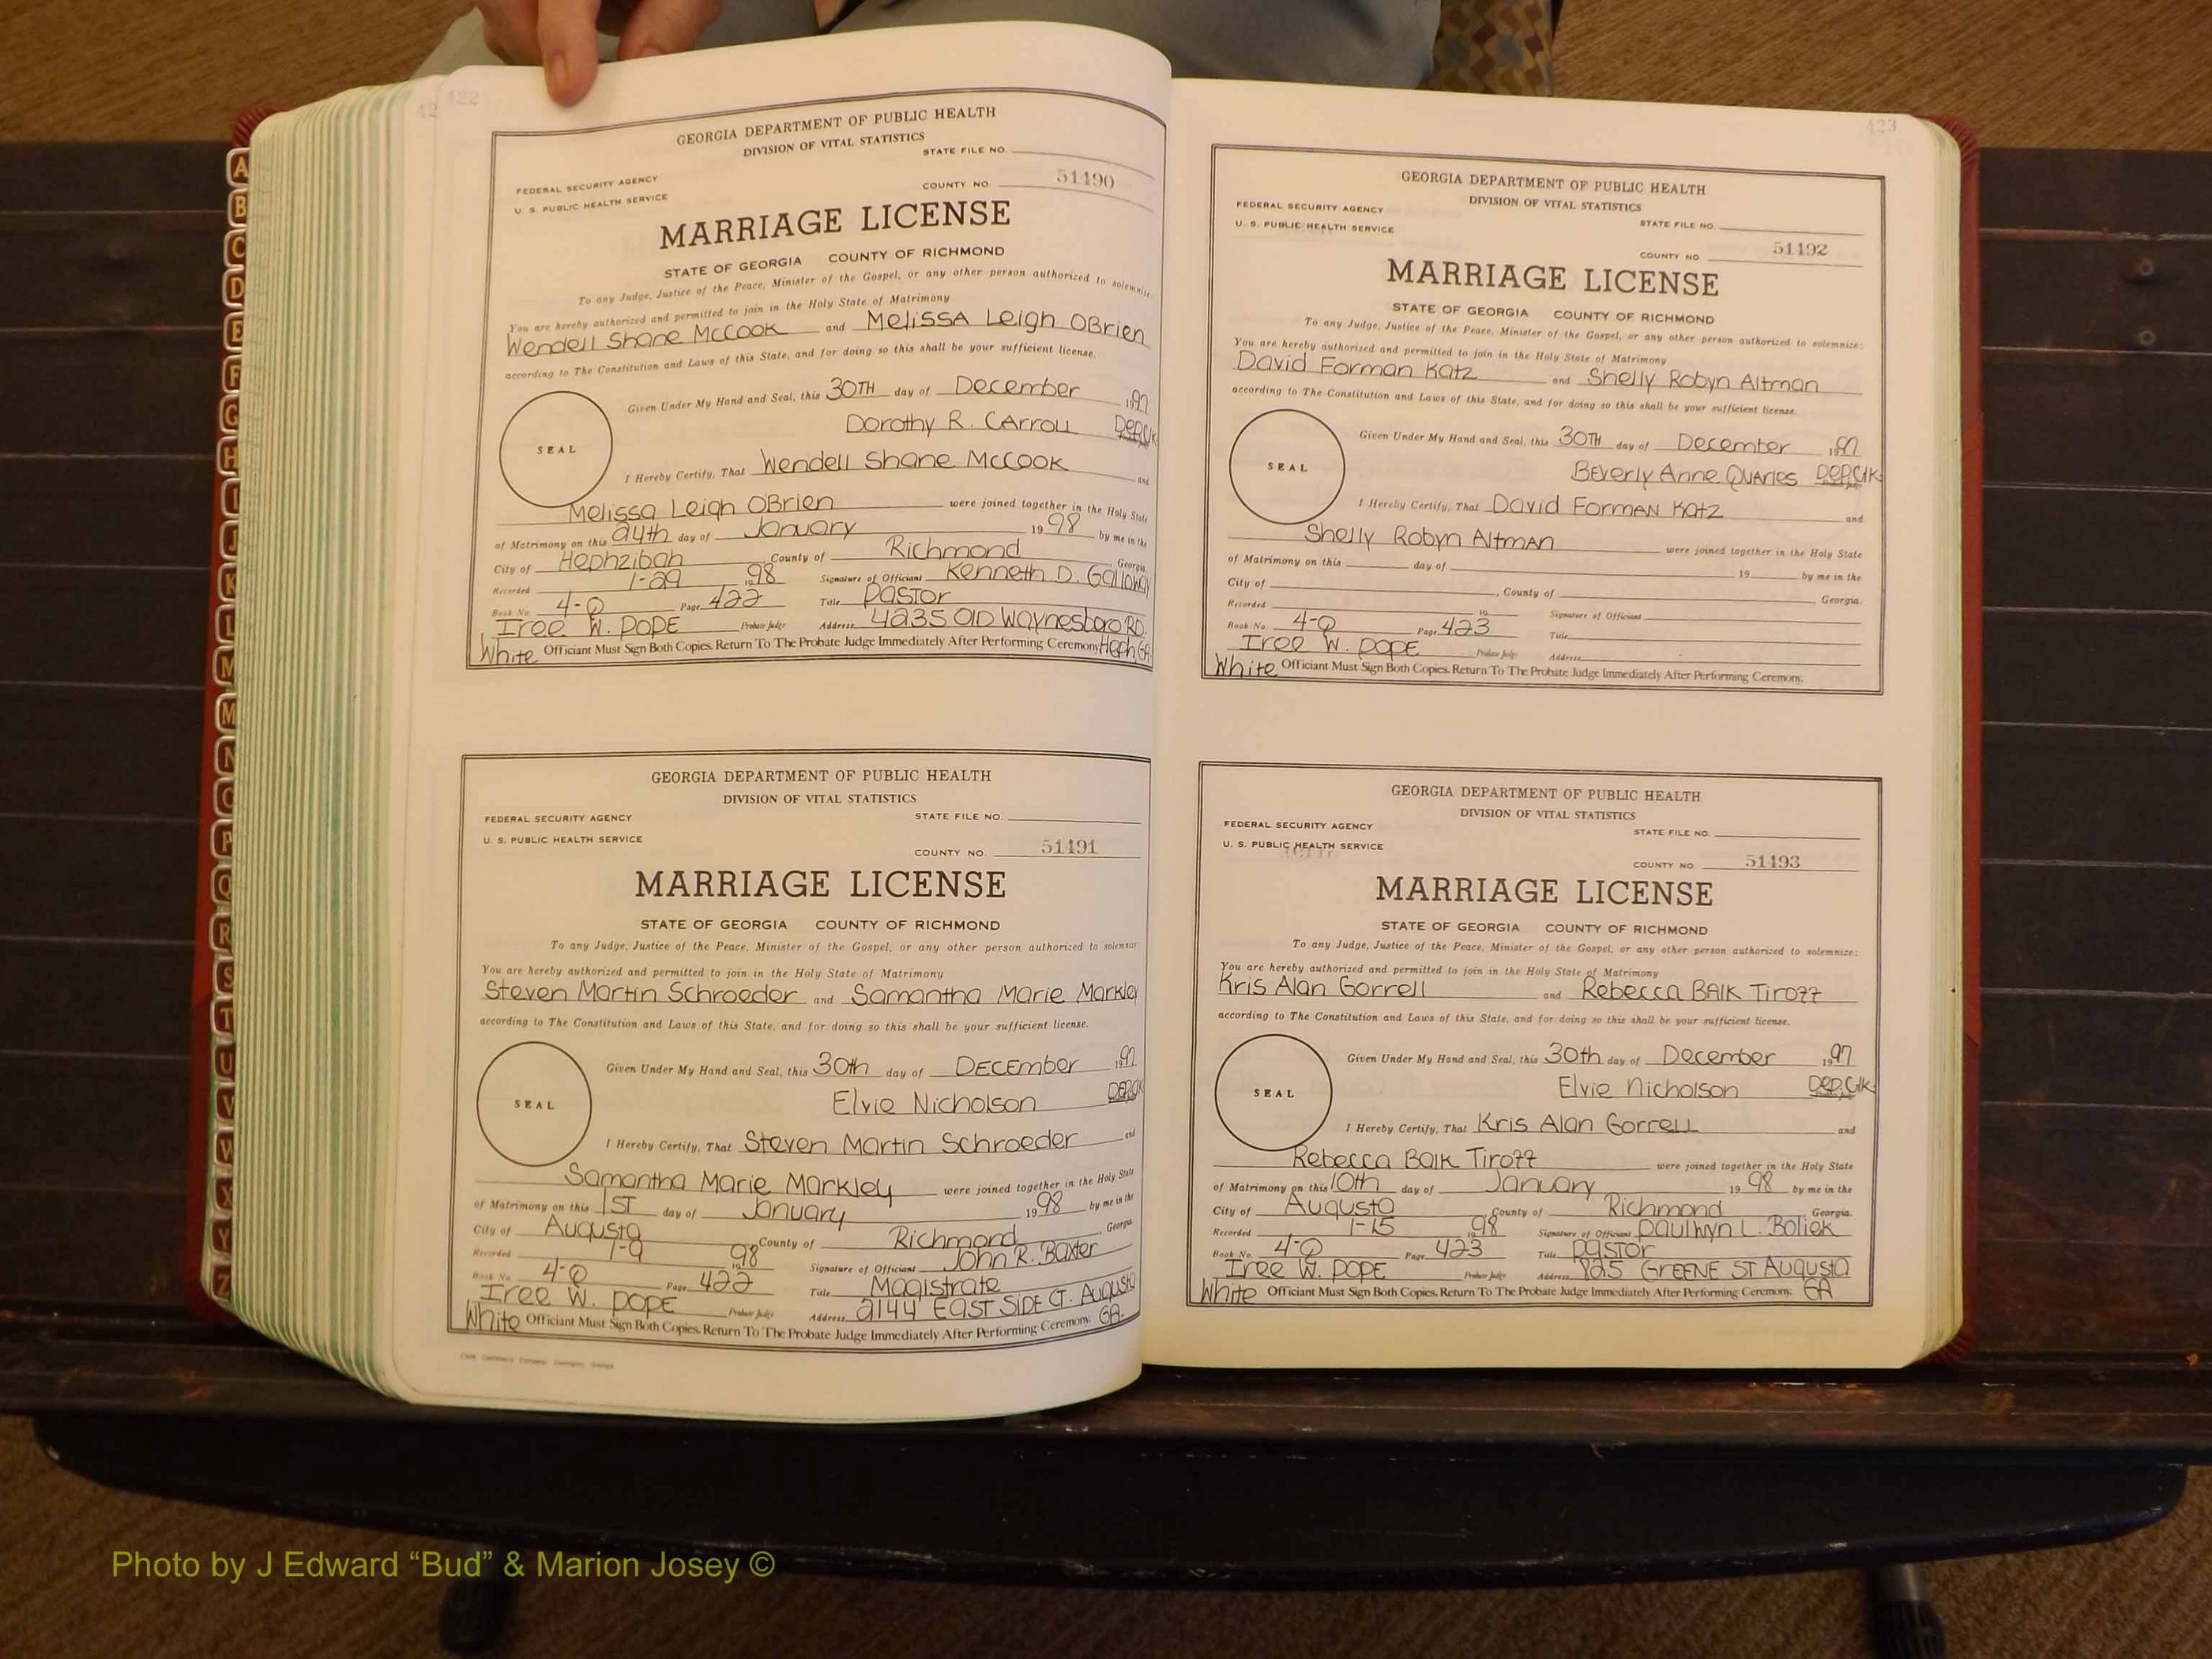 A
B
C
D
E
F
G
H
I
J
K
L
M
M
N
O
P
Q
R
S
T
U
V
W
X
Y
Z
422
GEORGIA DEPARTMENT OF PUBLIC HEALTH
DIVISION OF VITAL STATISTICS
STATE FILE NO.
FEDERAL SECURITY AGENCY
U. S. PUBLIC HEALTH SERVICE
COUNTY NO. 51490
MARRIAGE LICENSE
STATE OF GEORGIA COUNTY OF RICHMOND
To any Judge, Justice of the Peace, Minister of the Gospel, or any other person authorized to solemnize
You are hereby authorized and permitted to join in the Holy State of Matrimony
Wendell Shane McCook and Melissa Leigh OBrien
according to The Constitution and Laws of this State, and for doing so this shall be your sufficient license.
Given Under My Hand and Seal, this 30TH day of December 1997
Dorothy R. Carroll Dep.Clk
SEAL
I Hereby Certify, That Wendell Shane McCook and
Melissa Leigh O'Brien were joined together in the Holy State
of Matrimony on this 24th day of January 1998 by me in the
City of Hephzibah County of Richmond, Georgia.
Recorded 1-29 1998 Signature of Officiant Kenneth D. Galloway
Book No. 4-Q Page 422 Title Pastor
Iree W. Pope Probate Judge Address 4235 Old Waynesboro RD.
White Officiant Must Sign Both Copies. Return To The Probate Judge Immediately After Performing Ceremony. Heph, GA
GEORGIA DEPARTMENT OF PUBLIC HEALTH
DIVISION OF VITAL STATISTICS
FEDERAL SECURITY AGENCY
STATE FILE NO.
U. S. PUBLIC HEALTH SERVICE
COUNTY NO. 51491
MARRIAGE LICENSE
STATE OF GEORGIA COUNTY OF RICHMOND
To any Judge, Justice of the Peace, Minister of the Gospel, or any other person authorized to solemnize:
You are hereby authorized and permitted to join in the Holy State of Matrimony
Steven Martin Schroeder and Samantha Marie Markley
according to The Constitution and Laws of this State, and for doing so this shall be your sufficient license.
Given Under My Hand and Seal, this 30th day of December 1997
Elvie Nicholson Dep.Clk
SEAL
I Hereby Certify, That Steven Martin Schroeder and
Samantha Marie Markley were joined together in the Holy State
of Matrimony on this 1ST day of January 1998 by me in the
City of Augusta County of Richmond, Georgia
Recorded 1-9 1998 Signature of Officiant John R. Baxter
Book No. 4-Q Page 422 Title Magistrate
Iree W. Pope Probate Judge Address 2144 East Side CT. Augusta
White Officiant Must Sign Both Copies. Return To The Probate Judge Immediately After Performing Ceremony. GA.
423
GEORGIA DEPARTMENT OF PUBLIC HEALTH
DIVISION OF VITAL STATISTICS
FEDERAL SECURITY AGENCY
STATE FILE NO.
U. S. PUBLIC HEALTH SERVICE
COUNTY NO. 51492
MARRIAGE LICENSE
STATE OF GEORGIA COUNTY OF RICHMOND
To any Judge, Justice of the Peace, Minister of the Gospel, or any other person authorized to solemnize:
You are hereby authorized and permitted to join in the Holy State of Matrimony
David Forman Katz and Shelly Robyn Altman
according to The Constitution and Laws of this State, and for doing so this shall be your sufficient license.
Given Under My Hand and Seal, this 30TH day of December 1997
Beverly Anne Quarles Dep.Clk.
SEAL
I Hereby Certify, That David Forman Katz and
Shelly Robyn Altman were joined together in the Holy State
of Matrimony on this day of 19 by me in the
City of , County of , Georgia.
Recorded 19 Signature of Officiant
Book No. 4-Q Page 423 Title
Iree W. Pope Probate Judge Address
White Officiant Must Sign Both Copies. Return To The Probate Judge Immediately After Performing Ceremony.
GEORGIA DEPARTMENT OF PUBLIC HEALTH
DIVISION OF VITAL STATISTICS
FEDERAL SECURITY AGENCY
STATE FILE NO.
U. S. PUBLIC HEALTH SERVICE
COUNTY NO. 51493
MARRIAGE LICENSE
STATE OF GEORGIA COUNTY OF RICHMOND
To any Judge, Justice of the Peace, Minister of the Gospel, or any other person authorized to solemnize:
You are hereby authorized and permitted to join in the Holy State of Matrimony
Kris Alan Gorrell and Rebecca Balk Tirozz
according to The Constitution and Laws of this State, and for doing so this shall be your sufficient license.
Given Under My Hand and Seal, this 30th day of December 1997
Elvie Nicholson Dep.Clk.
SEAL
I Hereby Certify, That Kris Alan Gorrell and
Rebecca Balk Tirozz were joined together in the Holy State
of Matrimony on this 10th day of January 1998 by me in the
City of Augusta County of Richmond Georgia.
Recorded 1-15 1998 Signature of Officiant Paulwyn L. Boliek
Book No. 4-Q Page 423 Title Pastor
Iree W. Pope Probate Judge Address 825 Greene ST Augusta
White Officiant Must Sign Both Copies. Return To The Probate Judge Immediately After Performing Ceremony. GA
Photo by J Edward “Bud” & Marion Josey ©